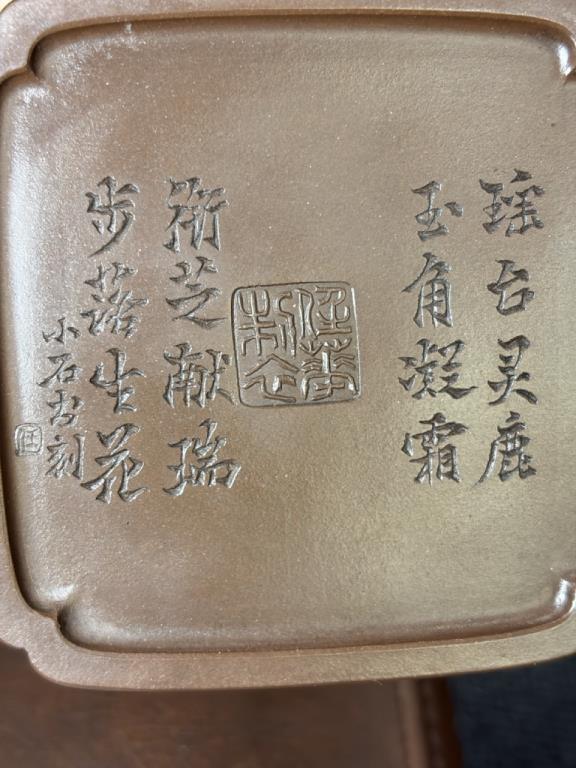 瑶台灵鹿
玉角凝霜
衔芝献瑞
步落生花
小石书刻